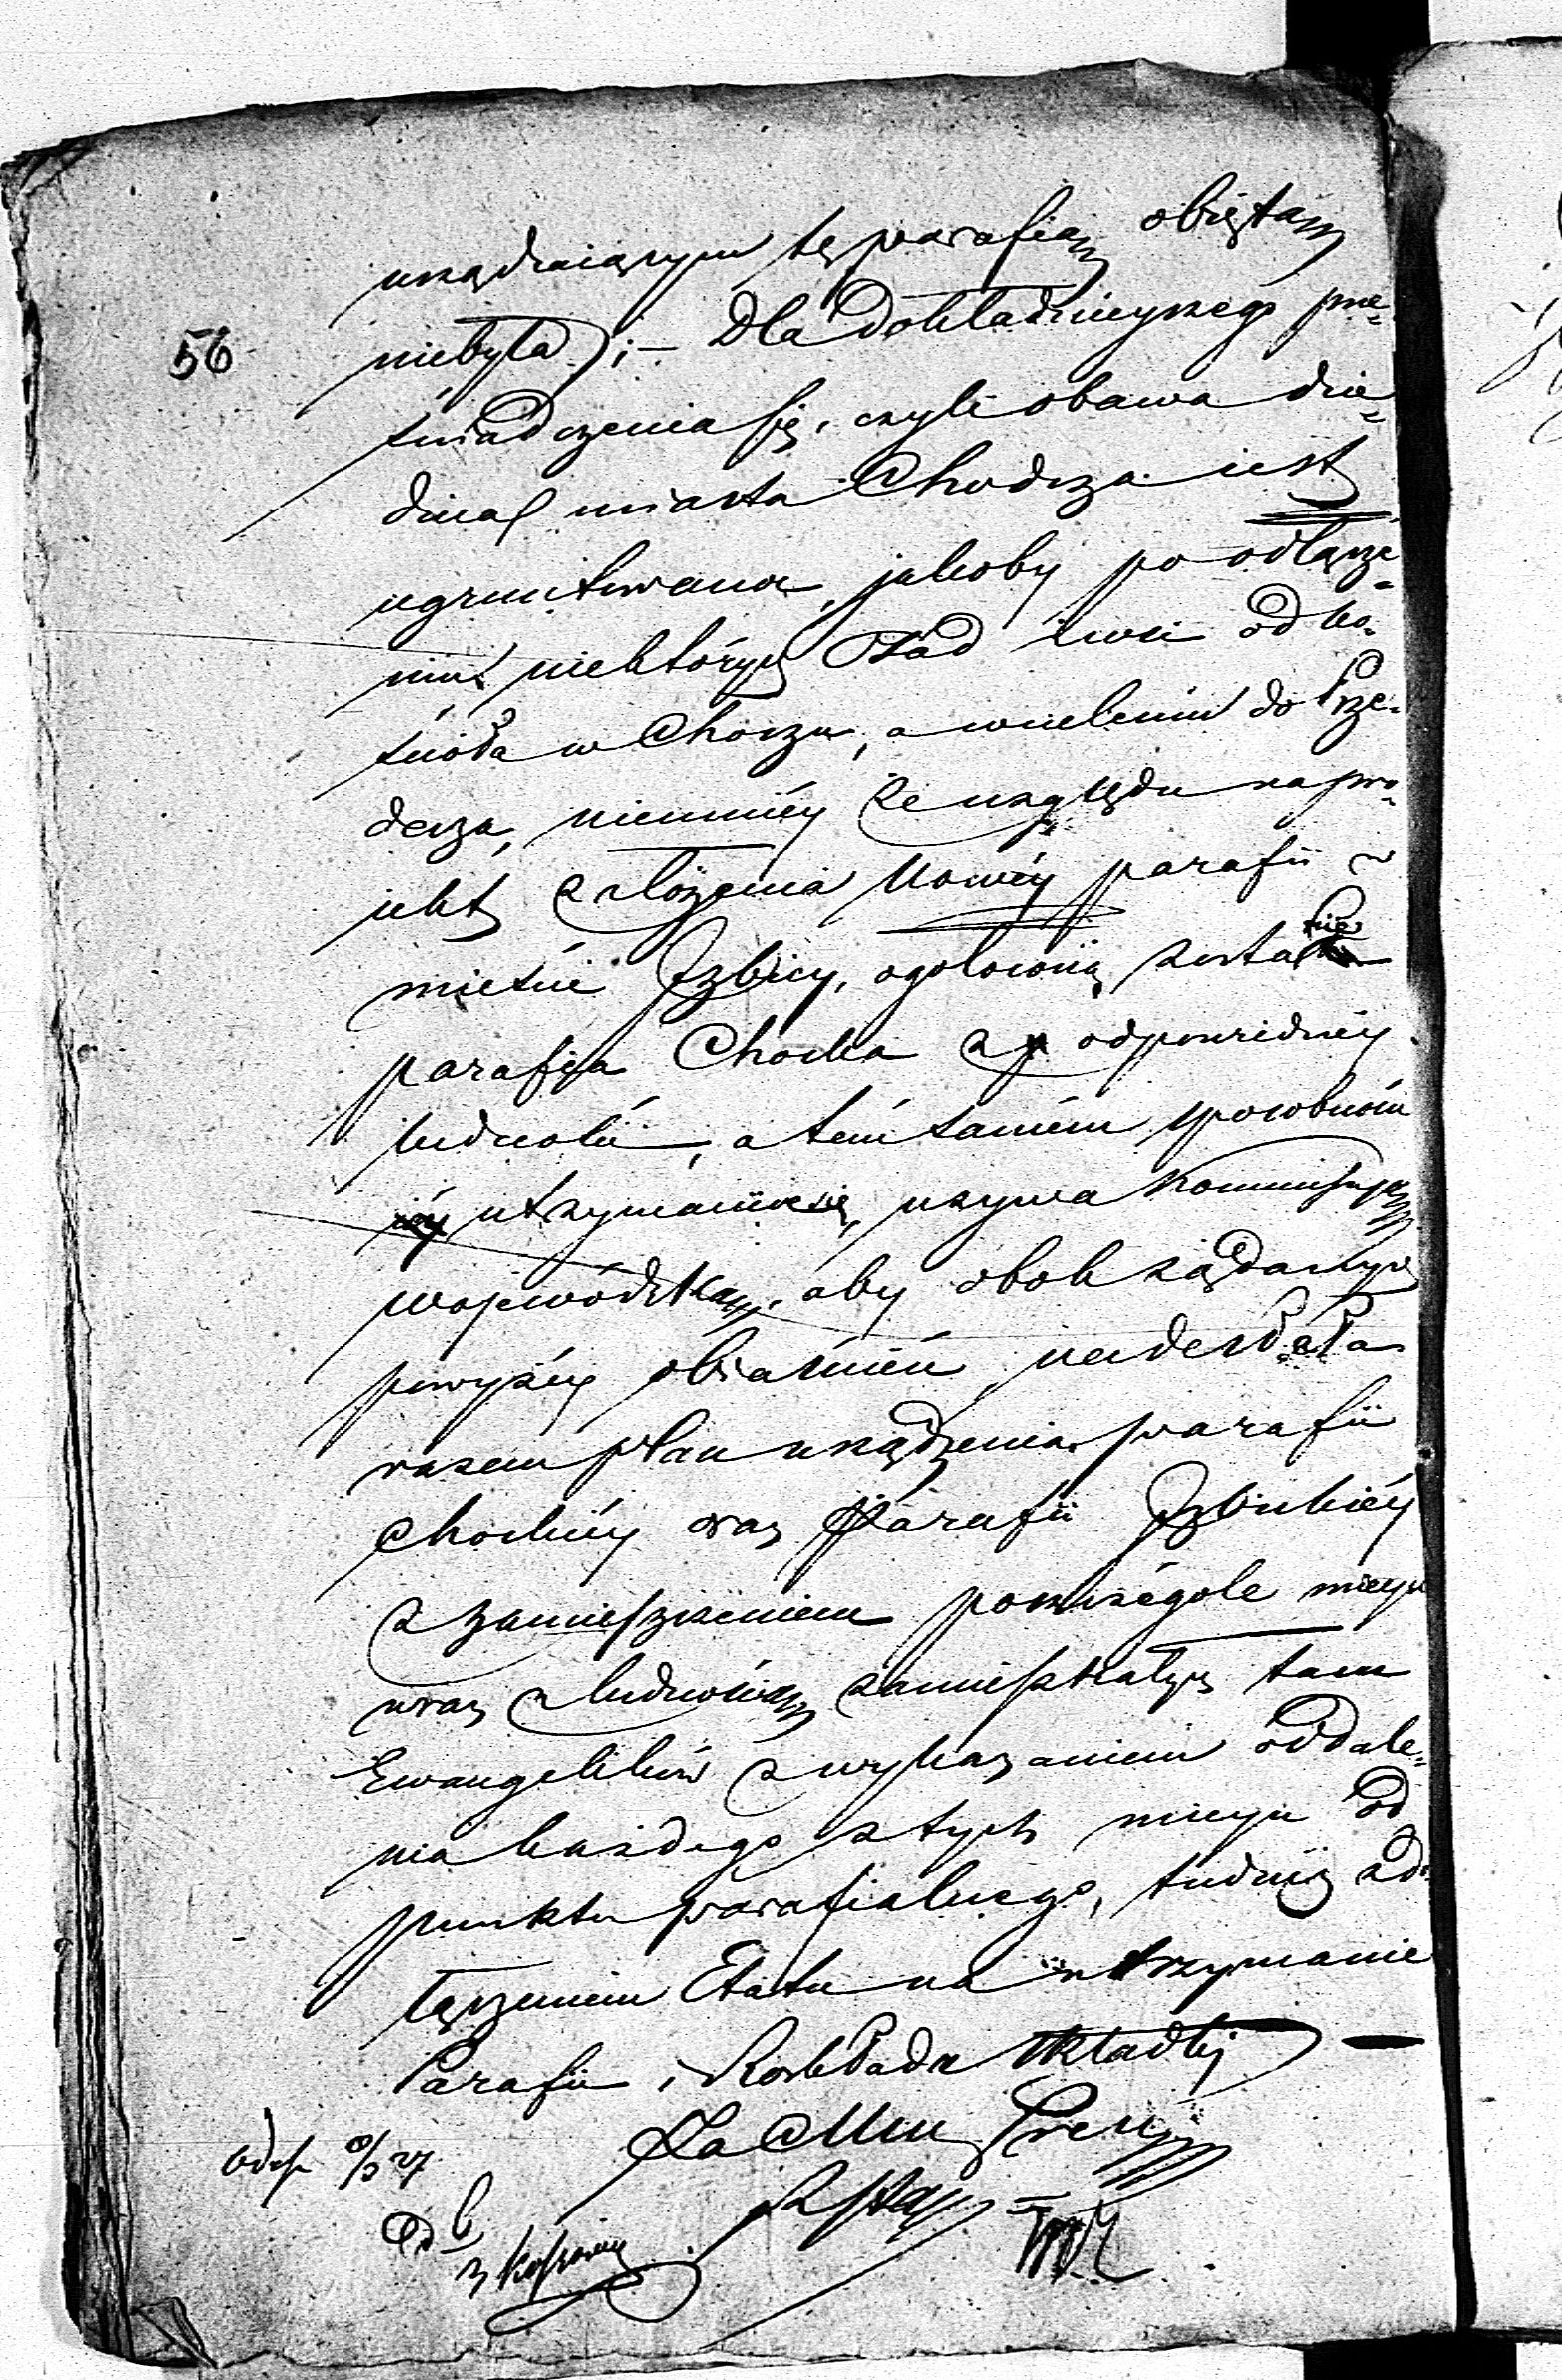 urządzaiącym tę parafią obiętą
56
niebyła); – Dla dokładnieyszego prze-
świadczenia się, czyli obawa dzie-
dzica miasta Chodcza iest
ugruntowana, jakoby po odłącze-
niu niektórych Osad i wsi od ko-
ścioła w Chodczu, a wcieleniu do Prze-
decza, niemniéy ze względu na pro-
jekt założenia Nowéy parafii w
mieście Izbicy, ogołoconą zostanie
parafija Chodecka z odpowiedniéy
ludności, a tém samém sposobności
utrzymania się, wzywa Kommissyą
Wojewódzką, aby obok żądanych
powyżéy obiaśnień nadesłała
razem plan urządzenia parafii
Chodeckiéy oraz Parafii Izbickiéy
z zamieszczeniem poszczególe mieysc
wraz z ludnością zamieszkałych tam
Ewangelików z wykazaniem oddale-
nia każdego z tych mieysc od
punktu parafialnego, tudzież z do-
łączeniem Etatu na utrzymanie
Parafii i Rozkładu składki —
Za Min Prez